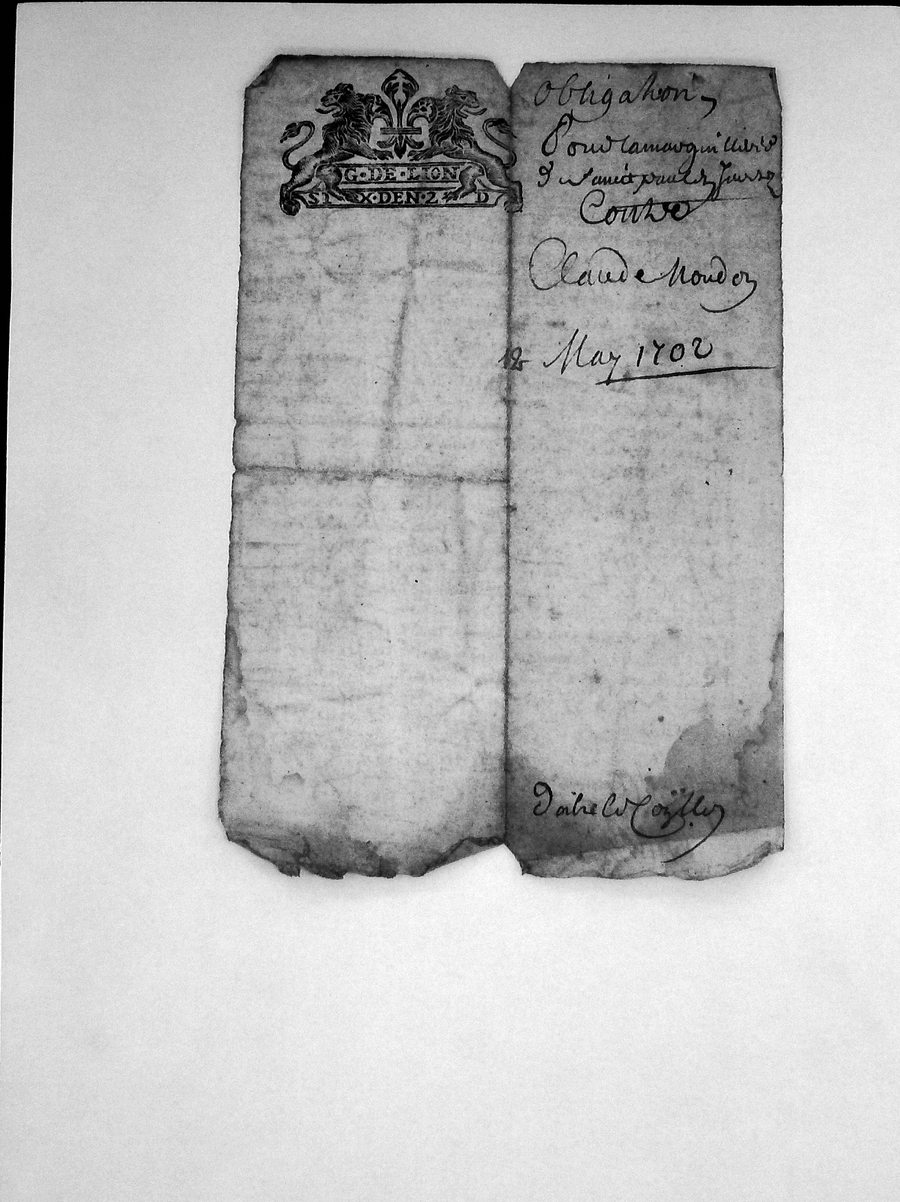 G·DE·LION
SIX·DEN·2 D
Obligation
Pour la marguillerie
de sainct paul en Jarez
Contre
Claude Moudon
12 May 1702